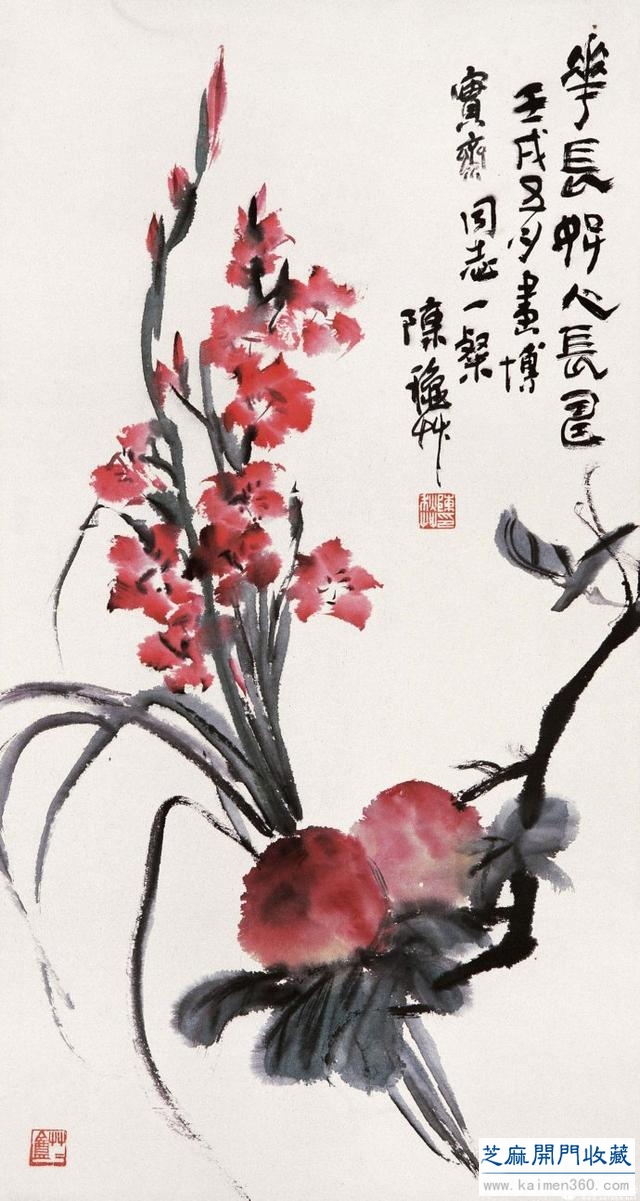 華長好人長
壬戌五月畫博
實齋同志一粲
陳穐艸
芝麻開門收藏
www.kaimen360.com